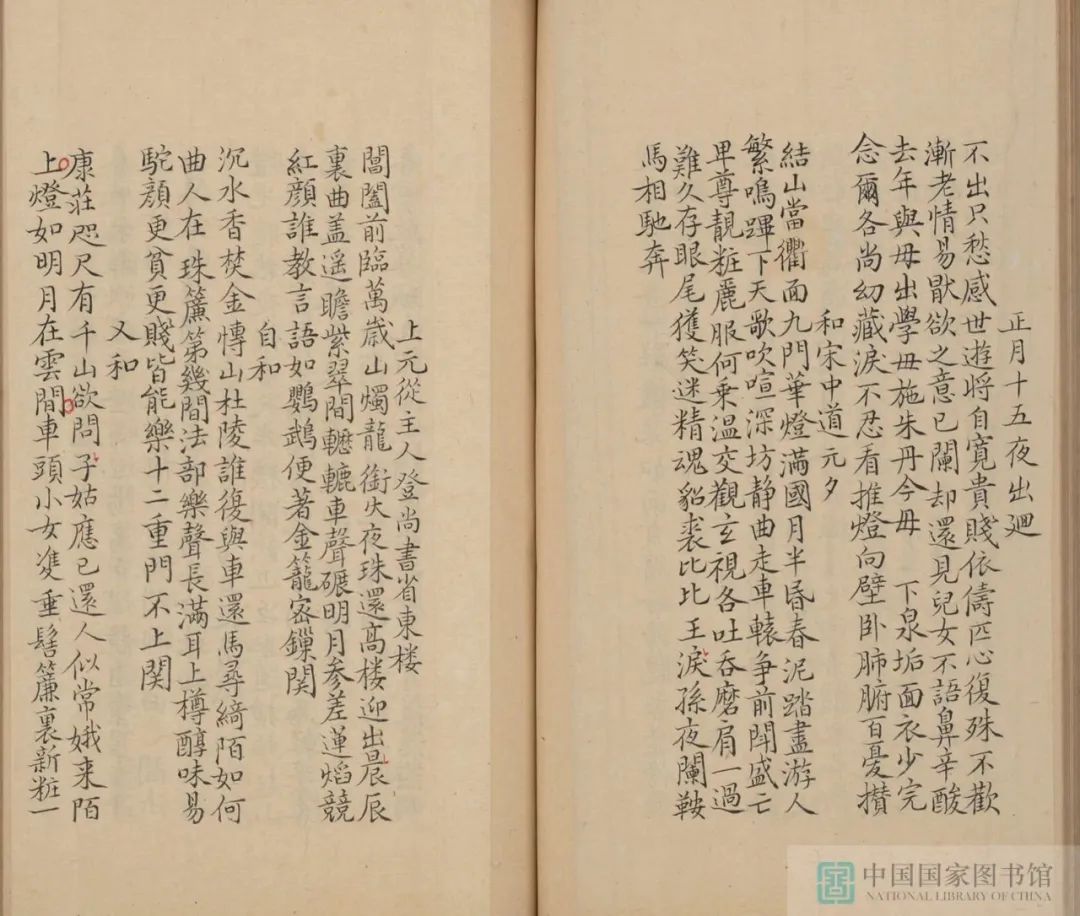 正月十五夜出廻
不出只愁感世遊將自寬貴賤依儔匹心復殊不歡
漸老情易猒欲之意已闌却還見兒女不語鼻辛酸
去年與母出學母施朱丹今母下泉垢面衣少完
念爾各尚幼藏淚不忍看推燈向壁卧肺腑百憂攅
和宋中道元夕
結山當衢面九門華燈滿國月半昏春泥踏盡游人
繁鳴蹕下天歌吹喧深坊静曲走車轅争前鬪盛亡
卑尊靚粧麗服何乗温交觀玄視各吐吞磨肩一過
難久存眼尾獲笑迷精魂貂裘比比王淚孫夜闌鞍
馬相馳奔
上元從主人登尚書省東楼
閶闔前臨萬歳山燭龍銜火夜珠還高楼迎出晨辰
裏曲盖遥瞻紫翠間轣轆車聲碾明月參差蓮熖競
紅顔誰教言語如鸚鵡便著金籠宻鏁関
自和
沉水香焚金愽山杜陵誰復與車還馬尋綺陌如何
曲人在珠簾第幾間法部樂聲長滿耳上樽醇味易
駝顔更貧更賤皆能樂十二重門不上関
又和
康莊咫尺有千山欲問子姑應已還人似常娥来陌
上燈如明月在雲間車頭小女䨇垂髻簾裏新粧一
中国国家图书馆
NATIONAL LIBRARY OF CHINA